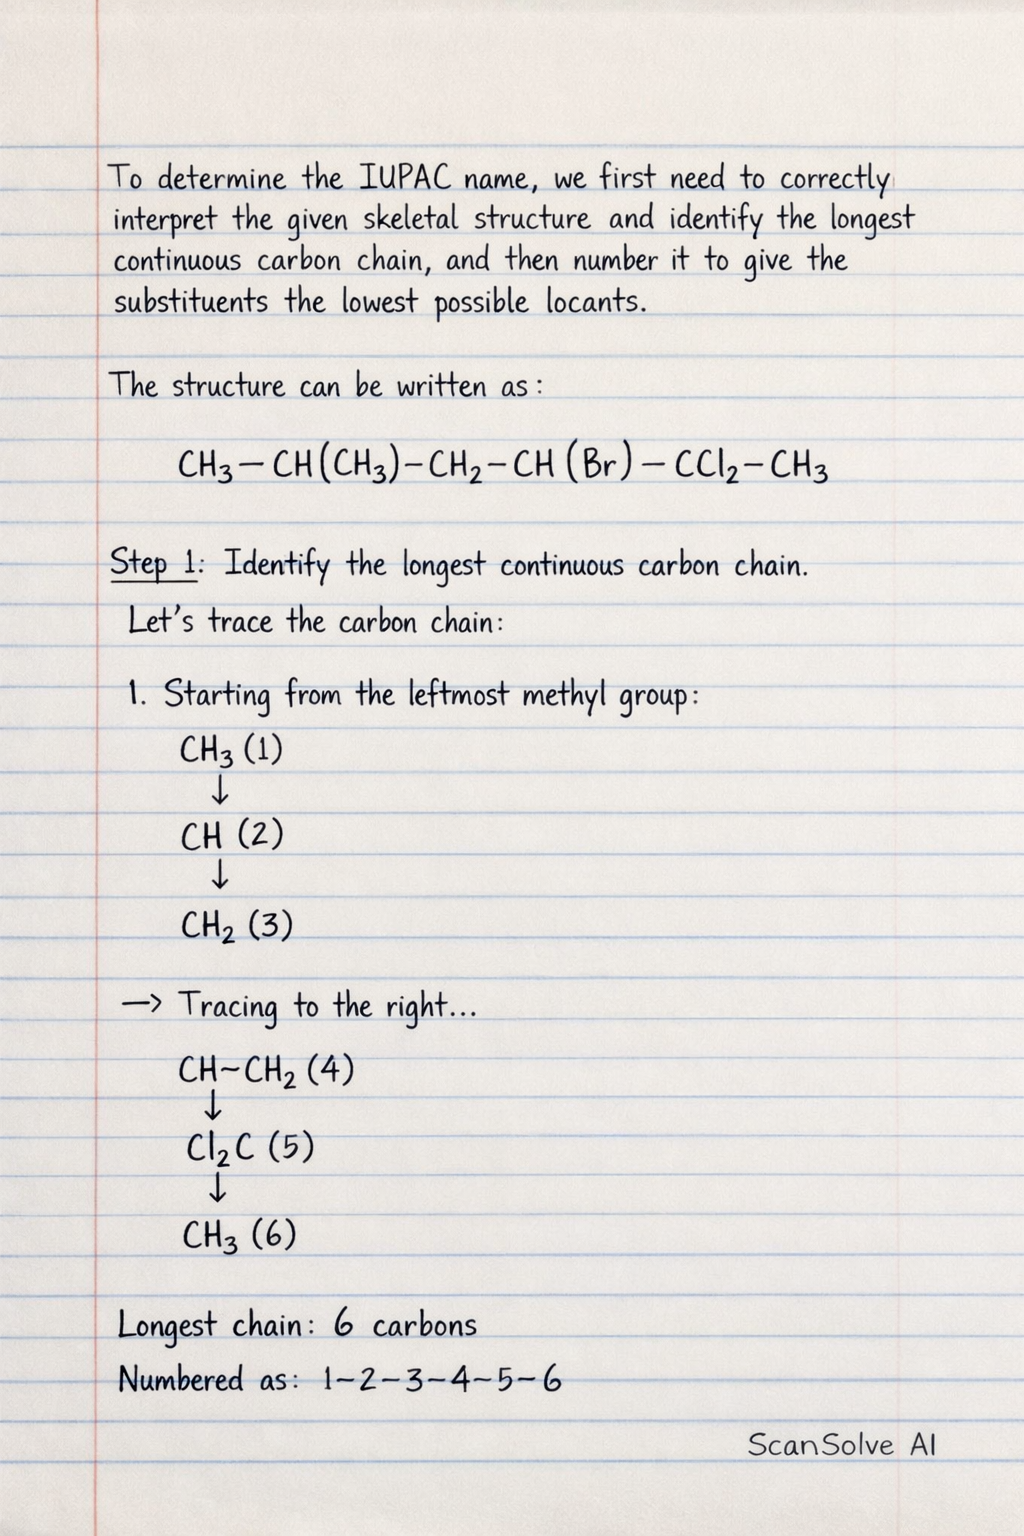 To determine the IUPAC name, we first need to correctly
interpret the given skeletal structure and identify the longest
continuous carbon chain, and then number it to give the
substituents the lowest possible locants.
The structure can be written as:
CH₃–CH(CH₃)–CH₂–CH(Br)–CCl₂–CH₃
Step 1: Identify the longest continuous carbon chain.
Let's trace the carbon chain:
1. Starting from the leftmost methyl group:
CH₃ (1)
↓
CH (2)
↓
CH₂ (3)
→ Tracing to the right...
CH~CH₂ (4)
↓
Cl₂C (5)
↓
CH₃ (6)
Longest chain: 6 carbons
Numbered as: 1-2-3-4-5-6
ScanSolve AI